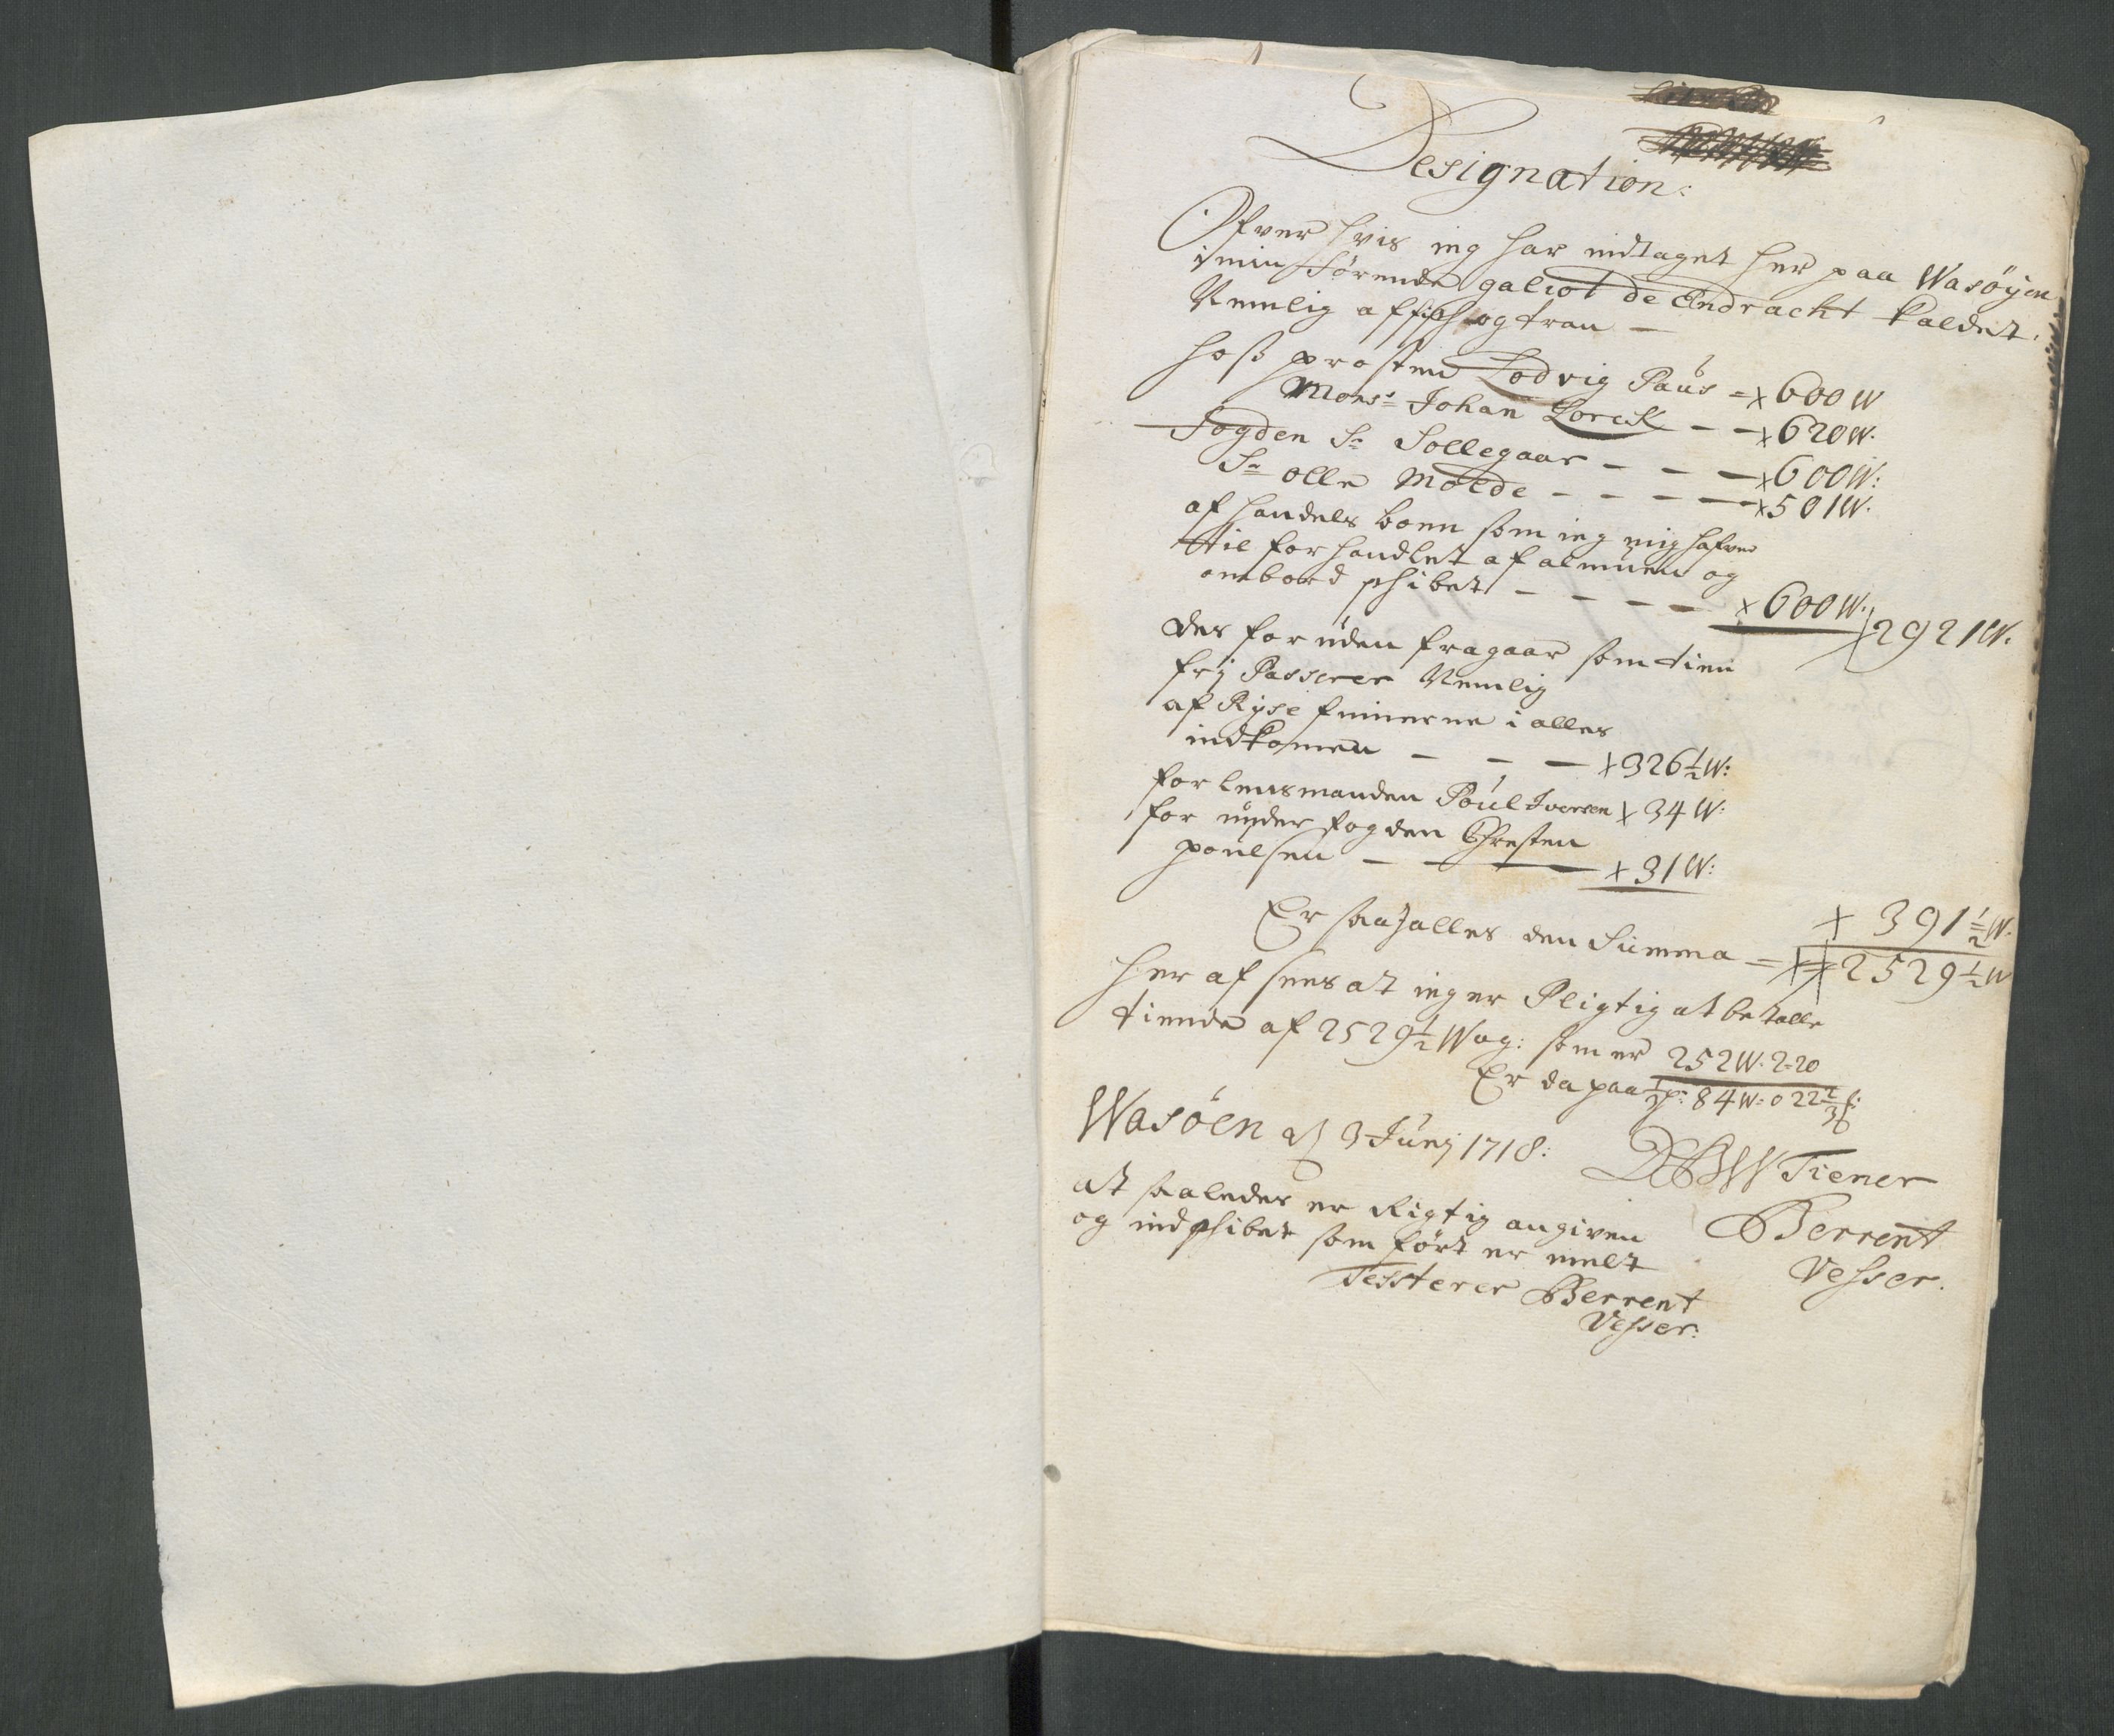 Designation:
Ofver hvis ieg har indtaget her paa Wasøyen
i min førende galiot de Endracht kaldet.
Nemlig af fisch og tran —
hoß prosten Lodvig Paus = x 600 W
Monsr: Johan Lorck — — x 620 W.
Fogden Sr Sollegaar — — — x 600 W:
Sr olle Molde — — — — x 501 W.
af handels boen som ieg mig hafver
til forhandlet af almuen og
ombord schibet — — — — x 600 W.
x 2921 W.
des foruden fragaar som tien
frj Passerer Nemlig
af Ryse finnerne i alles
indkomen — — — x 326 1/2 W:
for lensmanden Poul Iversen x 34 W:
for under fogden Chresten
poulsen — — — x 31 W:
x 391 1/2 W.
Er saa J alles den Summa = x 2529 1/2 W
her af sees at ieg er Pligtig at betalle
tiende af 2529 1/2 Wog: som er 252 W. 2-20
Er da paa 1/3 p: 84 W: 0 22 2/3
Wasøen d 3 Junj 1718:
Tiener
Berrent
Vesser.
at saaledes er Rigtig angiven
og indschibet somført er melt
Testerer Berrent
Vesser: